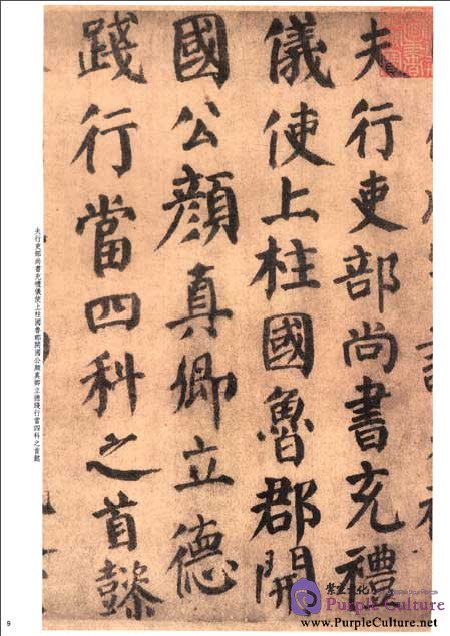 夫行吏部尚書充禮
儀使上柱國魯郡開
國公顏真卿立德
踐行當四科之首懿
夫行吏部尚書充禮儀使上柱國魯郡開國公顏真卿立德踐行當四科之首懿
9
Purple Culture
www.PurpleCulture.net